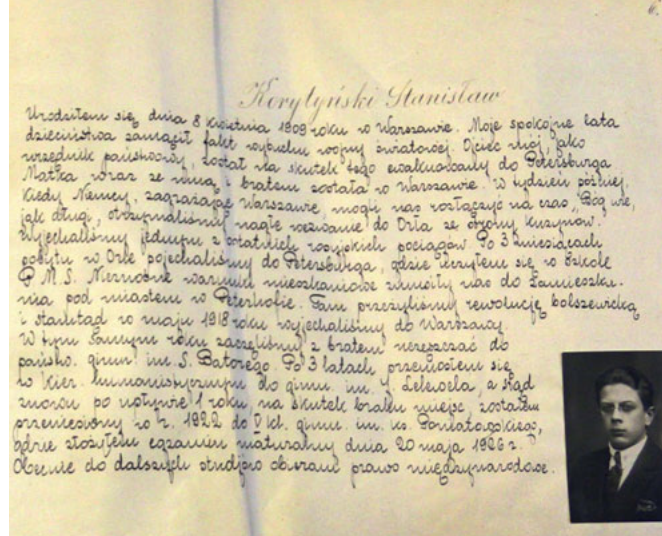 6.
Korytyński Stanisław
Urodziłem się dnia 8 kwietnia 1909 roku w Warszawie. Moje spokojne lata
dzieciństwa zamącił fakt wybuchu wojny światowej. Ojciec mój, jako
urzędnik państwowy, został na skutek tego ewakuowany do Petersburga
Matka wraz ze mną i bratem została w Warszawie. W tydzień później,
kiedy Niemcy, zagrażając Warszawie, mogli nas rozłączyć na czas, Bóg wie,
jak długi, otrzymaliśmy nagłe wezwanie do Orła ze strony kuzynów.
Wyjechaliśmy jednym z ostatnich rosyjskich pociągów. Po 3 miesiącach
pobytu w Orle pojechaliśmy do Petersburga, gdzie uczyłem się w Szkole
P. M. S. Nieznośne warunki mieszkaniowe zmusiły nas do zamieszka-
nia pod miastem w Peterhofie. Tam przeżyliśmy rewolucję bolszewicką
i stamtąd w maju 1918 roku wyjechaliśmy do Warszawy.
W tym samym roku zaczęliśmy z bratem uczęszczać do
państw. gimn. im. S. Batorego. Po 3 latach przeniosłem się
w kier. humanistycznym do gimn. im. J. Lelewela, a stąd
znowu po upływie 1 roku, na skutek braku miejsc, zostałem
przeniesiony w r. 1922 do V kl. gimn. im. ks. Poniatowskiego,
gdzie złożyłem egzamin maturalny dnia 20 maja 1926 r.
Obecnie do dalszych studjów obieram prawo międzynarodowe.